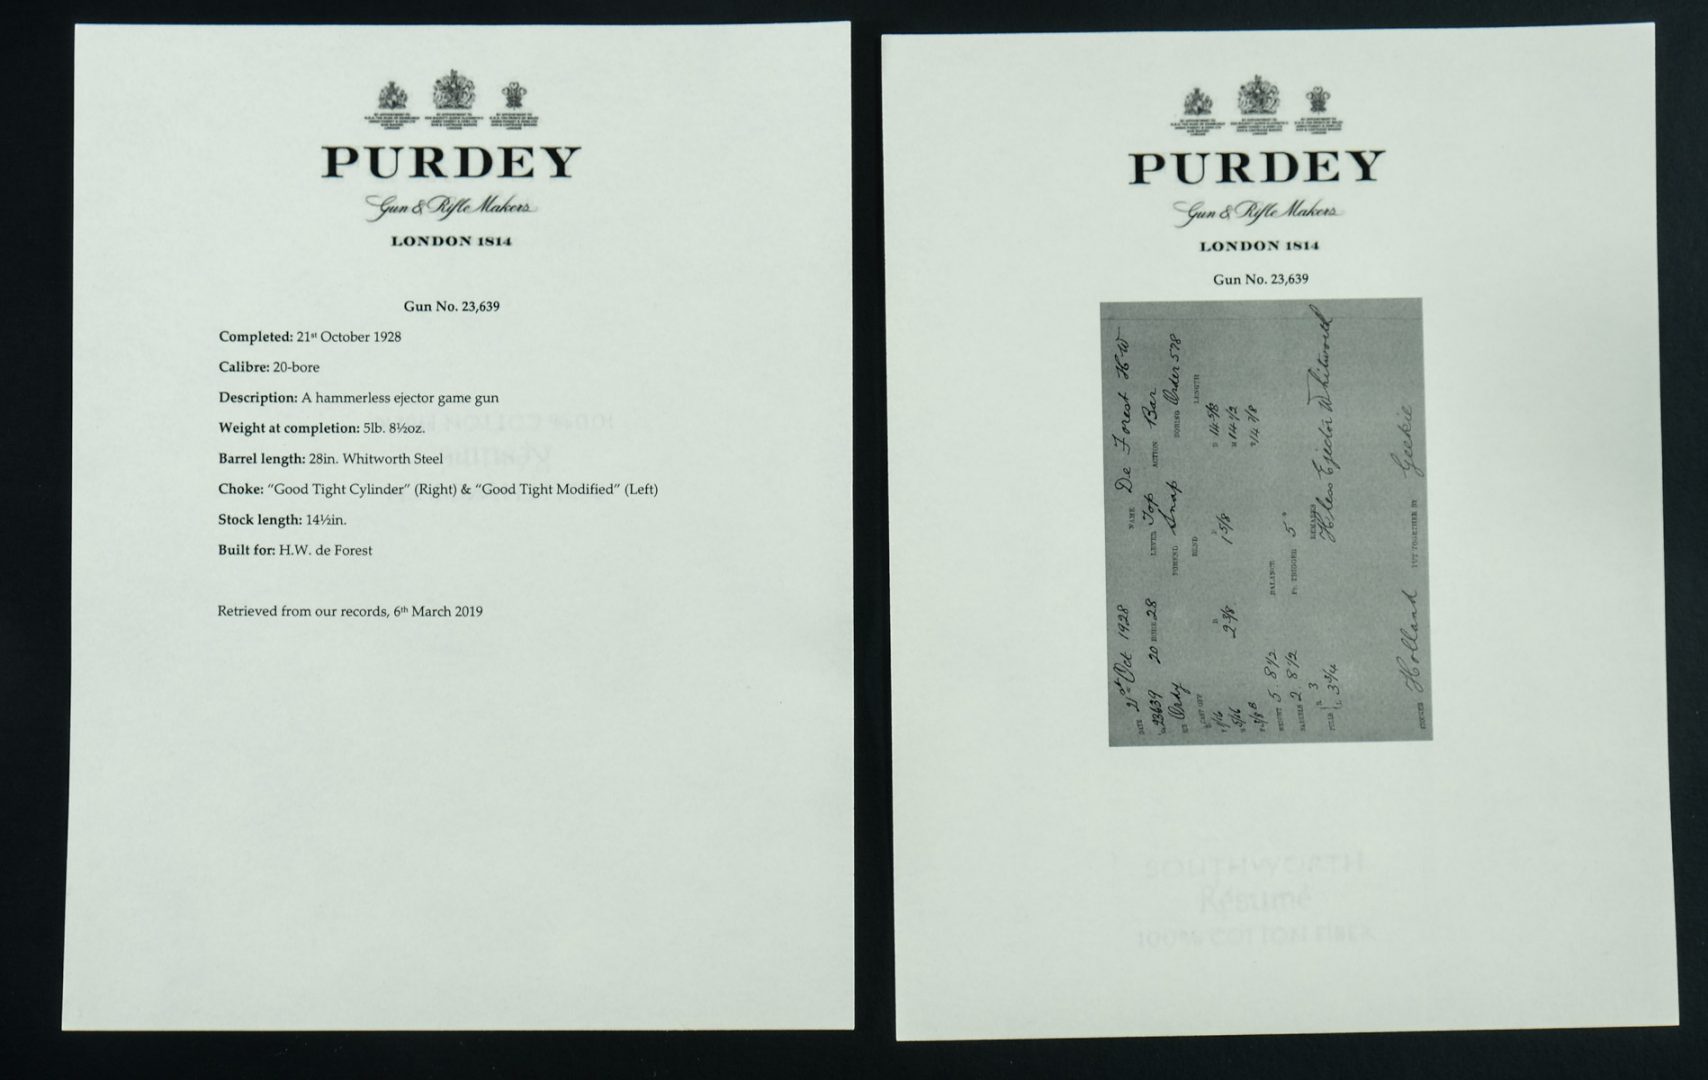 PURDEY
Gun & Rifle Makers
LONDON 1814
Gun No. 23,639
Completed: 21st October 1928
Calibre: 20-bore
Description: A hammerless ejector game gun
Weight at completion: 5lb. 8½oz.
Barrel length: 28in. Whitworth Steel
Choke: “Good Tight Cylinder” (Right) & “Good Tight Modified” (Left)
Stock length: 14½in.
Built for: H.W. de Forest
Retrieved from our records, 6th March 2019
PURDEY
Gun & Rifle Makers
LONDON 1814
Gun No. 23,639
DATE 21st Oct 1928 NAME De Forest HW
23639 20 BORE 28 LEVER Top ACTION Bar
Ordy FOREND Snap BORING Order 578
CAST OFF BEND LENGTH
1/16 2 3/8 1 5/8 14 5/8
5/16 14 1/2
3/8 14 7/8
WEIGHT 5. 8 1/2 BALANCE
BARRELS 2. 8 1/2 Fr. TRIGGER 5"
PULLS R. 3 REMARKS
L. 3 3/4 H'less Ejector Whitworth
Holland PUT TOGETHER BY Geekie
SOUTHWORTH
Résumé
100% COTTON FIBER